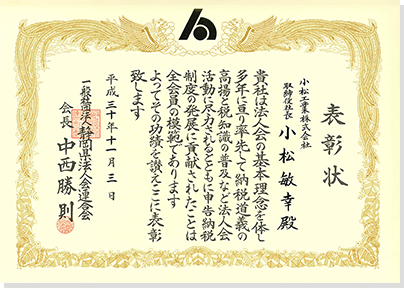 表彰状
小松工業株式会社
取締役社長 小松敏幸殿
貴社は法人会の基本理念を体し
多年に亘り率先して納税道義の
高揚と税知識の普及など法人会
活動に尽力されるとともに申告納税
制度の発展に貢献されたことは
全会員の模範であります
よってその功績を讃えここに表彰
致します
平成三十年十一月三日
一般社団法人静岡県法人会連合会
会長 中西勝則